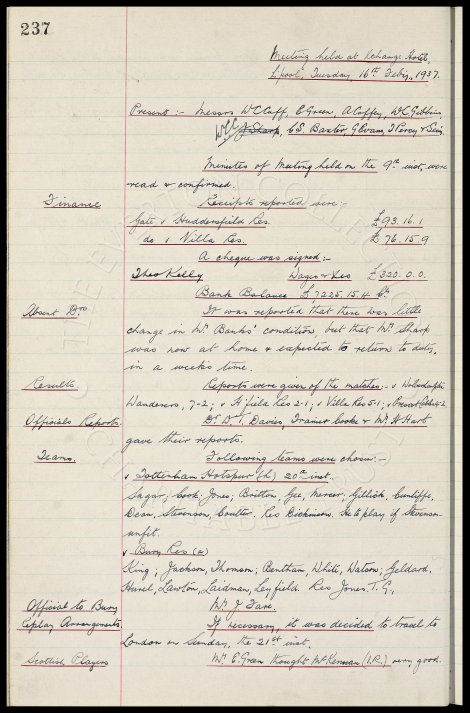 237
Meeting held at Exchange Hotel,
L'pool, Tuesday, 16th Febry, 1937.
Present :- Messrs W.C. Cuff, E. Green, A. Coffey, W.C. Gibbins,
WCC J. Sharp, C.S. Baxter, G. Evans, J. Percy & Secy.
Minutes of Meeting held on the 9th inst. were
read & confirmed.
Finance Receipts reported were:-
Gate v Huddersfield Res. £93.16.1
do v Villa Res. £76.15.9
A cheque was signed:-
Theo Kelly Wages & Fees £320.0.0.
Bank Balance £7225.15.4 Cr.
Absent Drs It was reported that there was little
change in Mr. Banks' condition but that Mr. Sharp
was now at home & expected to return to duty
in a week's time.
Results Reports were given of the matches:- v Wolverhampton
Wanderers, 7-2; v H'field Res 2-1; v Villa Res 5-1; v Prescot Cables 4-2.
Officials Reports. Dr. D.T. Davies, Trainer Cooke & Mr. A Hart
gave their reports.
Teams. Following teams were chosen:-
v Tottenham Hotspur (h) 20th inst.
Sagar; Cook, Jones; Britton, Gee, Mercer; Gillick, Cunliffe,
Dean, Stevenson, Coulter. Res Dickinson. He to play if Stevenson
unfit.
v Bury Res (a)
King; Jackson, Thomson; Bentham, White, Watson; Geldard,
Hurel, Lawton, Laidman, Leyfield. Res Jones. T.G.
Official to Bury Mr. J. Fare.
Replay Arrangements. If necessary, it was decided to travel to
London on Sunday, the 21st inst.
Scottish Players Mr. E. Green thought McKennan (I.R.) very good.